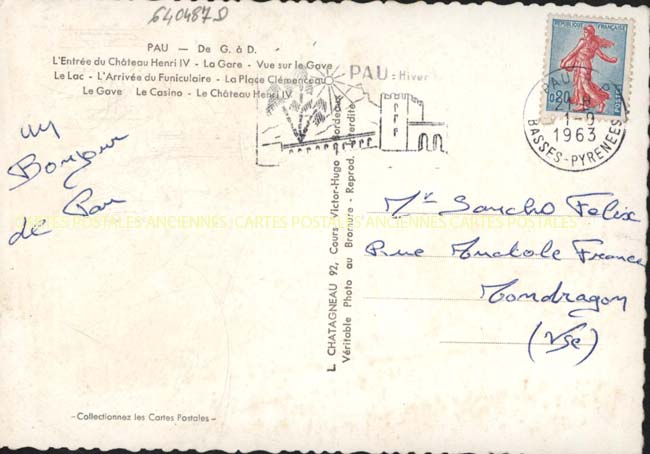 640487D
PAU — De G. à D.
L'Entrée du Château Henri IV - La Gare - Vue sur le Gave
Le Lac - L'Arrivée du Funiculaire - La Place Clémenceau
Le Gave Le Casino - Le Château Henri IV
PAU : Hiver
REPUBLIQUE FRANÇAISE
0,20
POSTES
PAU
1-9
1963
BASSES-PYRENEES
un
Bonjour
de Pau
CARTES POSTALES ANCIENNES CARTES POSTALES ANCIENNES CARTES POSTALES
Mr Sancho Felix
Rue Anatole France
Mondragon
(Vse)
L. CHATAGNEAU 92, Cours Victor-Hugo Bordeaux
Véritable Photo au Bromure - Reprod. Interdite
-Collectionnez les Cartes Postales-